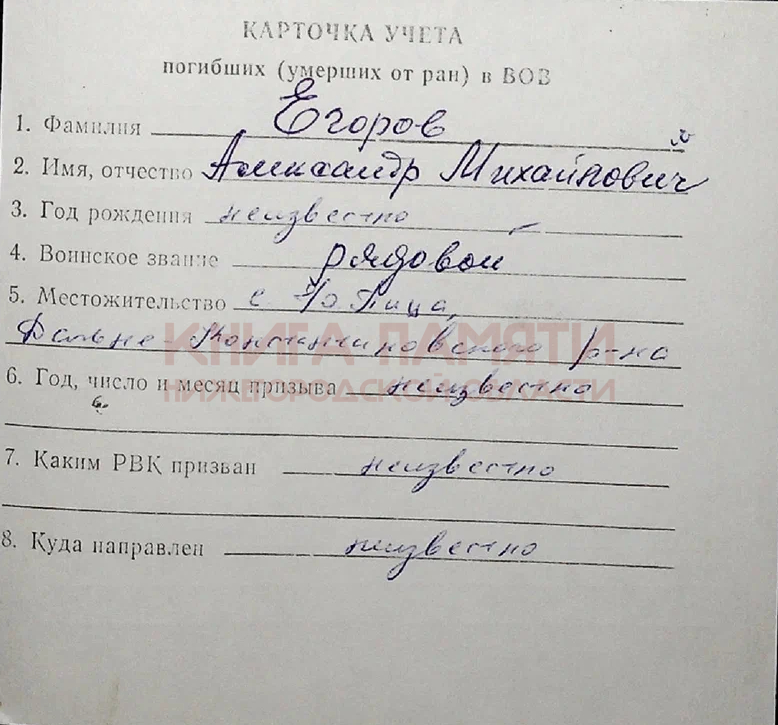 КАРТОЧКА УЧЕТА
погибших (умерших от ран) в ВОВ
1. Фамилия Егоров
2. Имя, отчество Александр Михайлович
3. Год рождения неизвестно
4. Воинское звание рядовой
5. Местожительство с.
Дальне-Константиновского р-на
КНИГА ПАМЯТИ
6. Год, число и месяц призыва неизвестно
НИЖЕГОРОДСКОЙ ОБЛАСТИ
7. Каким РВК призван неизвестно
8. Куда направлен неизвестно